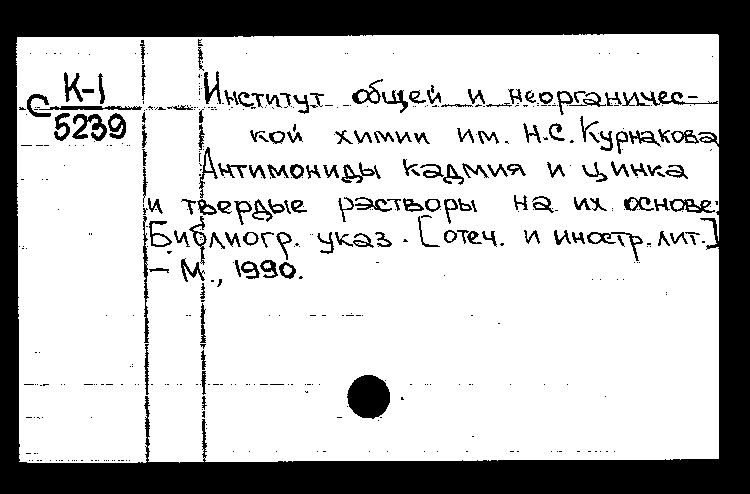 С К-1
5239
Институт общей и неорганичес-
кой химии им. Н.С. Курнакова
Антимониды кадмия и цинка
и твердые растворы на их основе:
Библиогр. указ. [отеч. и иностр. лит.]
– М., 1990.